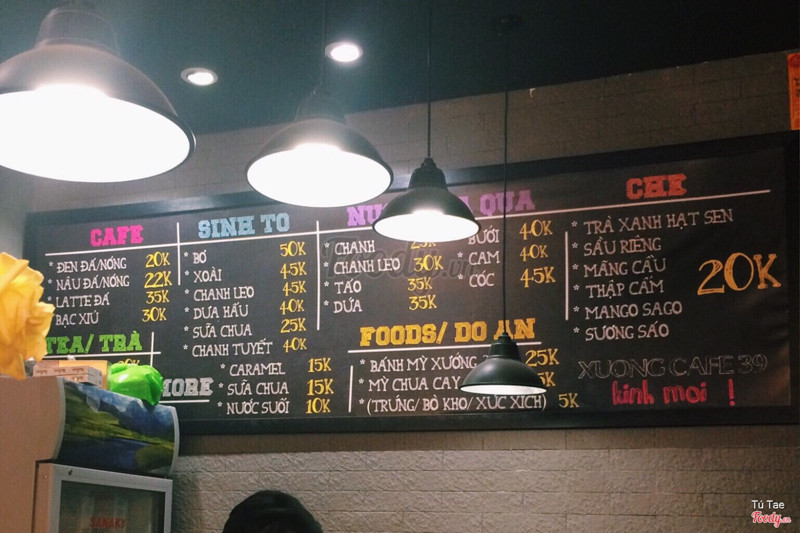 CAFE
* ĐEN ĐÁ/NÓNG 20K
* NÂU ĐÁ/NÓNG 22K
* LATTE ĐÁ 35K
* BẠC XỈU 30K
TEA/ TRÀ
SINH TO
* BƠ 50K
* XOÀI 45K
* CHANH LEO 45K
* DƯA HẤU 40K
* SỮA CHUA 25K
* CHANH TUYẾT 40K
MORE
* CARAMEL 15K
* SỮA CHUA 15K
* NƯỚC SUỐI 10K
QUA
* CHANH
* CHANH LEO 30K
* TÁO 35K
* DỨA 35K
* BƯỞI 40K
* CAM 40K
* CÓC 45K
FOODS/ DO AN
* BÁNH MỲ XƯỚNG 25K
* MỲ CHUA CAY
* (TRỨNG/ BÒ KHO/ XÚC XÍCH) 5K
CHE
* TRÀ XANH HẠT SEN
* SẦU RIÊNG
* MÃNG CẦU
* THẬP CẨM
* MANGO SAGO
* SƯƠNG SÁO
20K
XUONG CAFE 39
kinh moi !
SANAKY
Tú Tae
Foody.vn